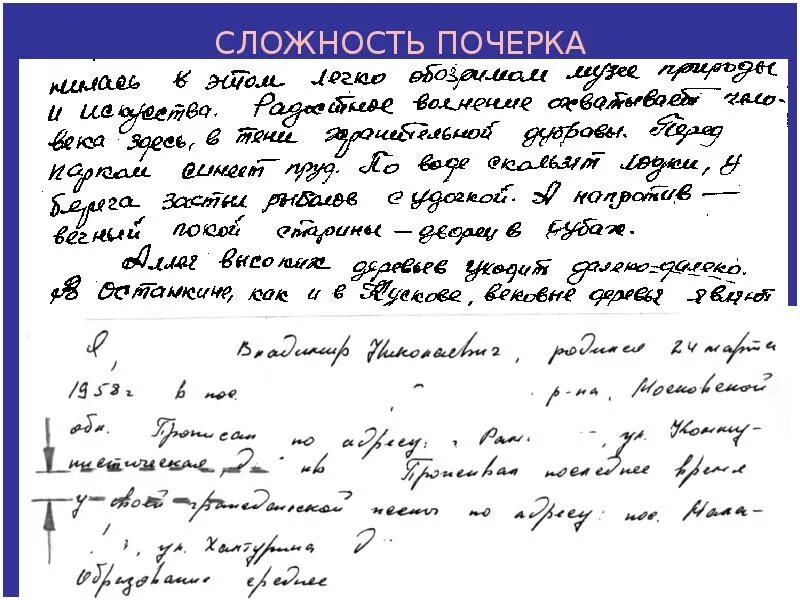 СЛОЖНОСТЬ ПОЧЕРКА
нилась в этом легко обозримом музее природы
и искусства. Радостное волнение охватывает чело-
века здесь, в тени хранительной дубравы. Перед
парком синеет пруд. По воде скользят лодки, у
берега застыл рыболов с удочкой. А напротив —
вечный покой старины — дворец в кубах.
Аллея высоких деревьев уходит далеко-далеко.
В Останкине, как и в Кускове, вековые деревья
Я, Владимир Николаевич, родился 24 марта
1958 г в пос. р-на, Московской
обл. Прописан по адресу: г Рам. ул. Комму-
нистическая, д. кв Проживал последнее время
у своей гражданской по адресу: пос. Мала-
ул. Халтурина д
Образование среднее